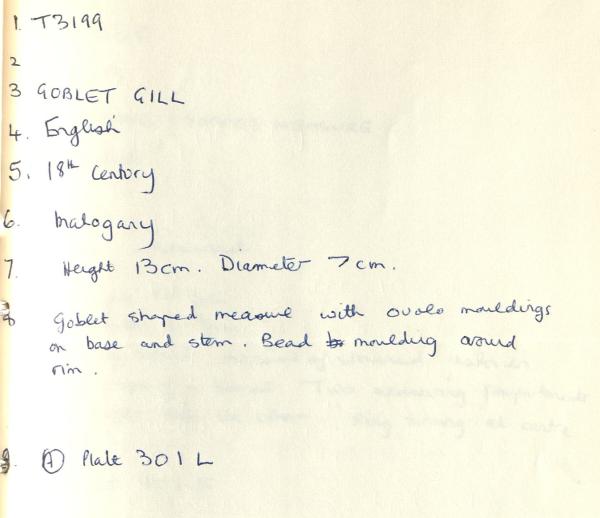 1. T3199
2
3 GOBLET GILL
4. English
5. 18th Century
6. Mahogany
7. Height 13cm. Diameter 7cm.
8 Goblet shaped measure with ovolo mouldings
on base and stem. Bead moulding around
rim.
9. (A) Plate 301 L